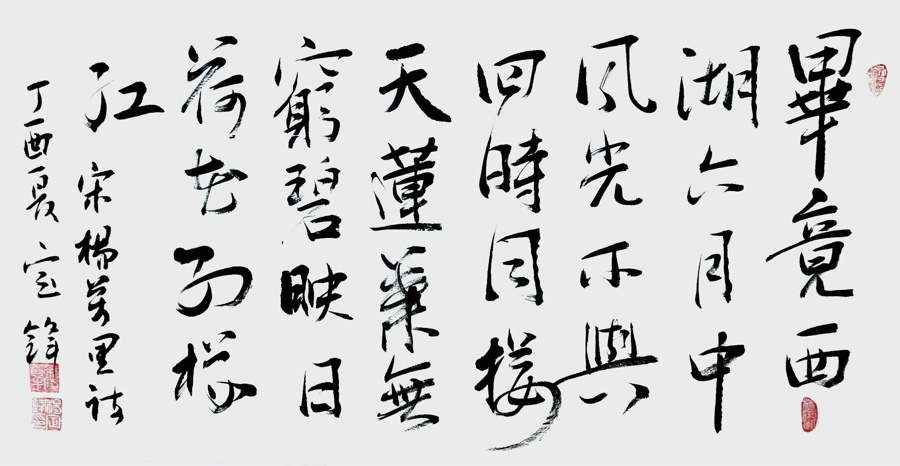 畢竟西
湖六月中
風光不與
四時同接
天蓮葉無
窮碧映日
荷花別樣
紅
宋楊萬里詩
丁酉夏宝鋒